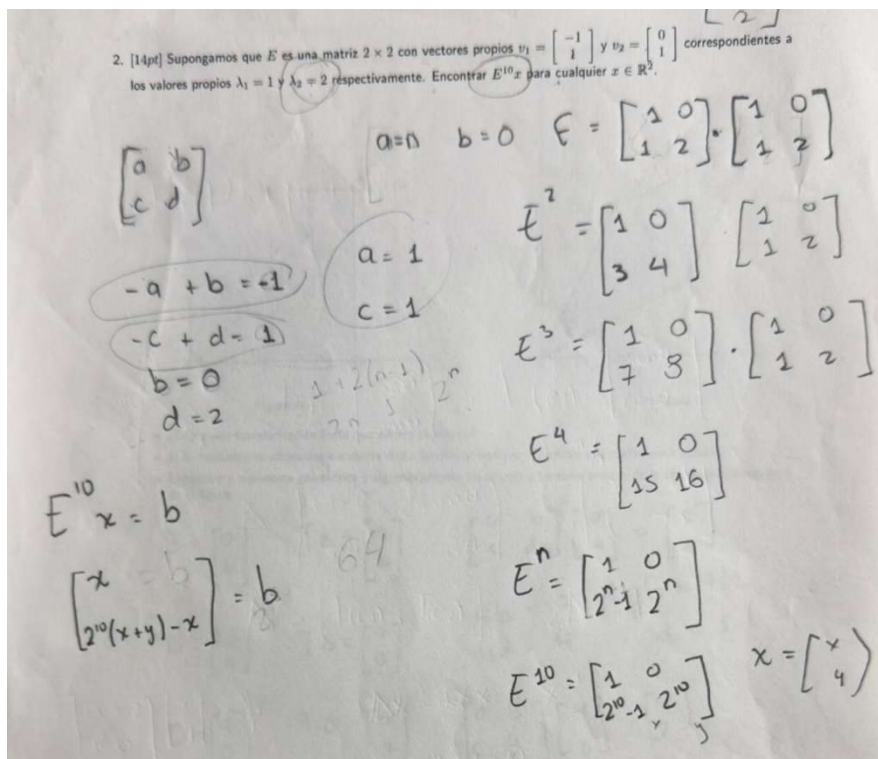 2. [14pt] Supongamos que E es una matriz 2 × 2 con vectores propios v₁ = [-1 1] y v₂ = [0 1] correspondientes a
los valores propios λ₁ = 1 y λ₂ = 2 respectivamente. Encontrar E¹⁰x para cualquier x ∈ ℝ².
[a b
c d]
-a + b = -1
-c + d = 1
b = 0
d = 2
a=n b=0
a = 1
c = 1
1+2(n-1) 2ⁿ
E¹⁰ x = b
[x
2¹⁰(x+y)-x] = b
64
E = [1 0
1 2] · [1 0
1 2]
E² = [1 0
3 4] [1 0
1 2]
E³ = [1 0
7 8] · [1 0
1 2]
E⁴ = [1 0
15 16]
Eⁿ = [1 0
2ⁿ-1 2ⁿ]
E¹⁰ = [1 0
2¹⁰-1 2¹⁰]
x y
x = [x
y]